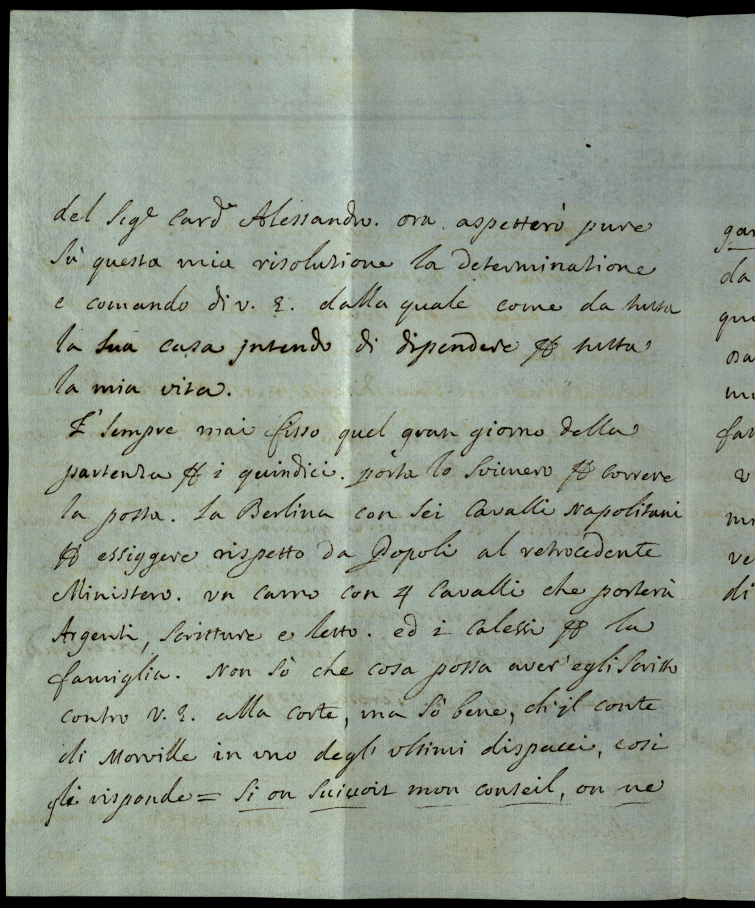 del Sig.e Card.e Alessandro. ora aspetterò pure
sù questa mia risoluzione la determinazione
e comando di v. E. dalla quale come da tutta
la sua casa intendo di dipendere per tutta
la mia vita.
E' sempre mai fisso quel gran giorno della
partenza per i quindici. porta lo per correre
la posta. La Berlina con sei Cavalli Napolitani
per essiggere rispetto da Popoli al retrocedente
Ministero. un carro con 4 Cavalli che porterà
Argenti, scritture e letto. ed i calessi per la
famiglia. Non sò che cosa possa aver' egli scritto
contro V. E. alla corte, ma sò bene, ch'il conte
di Morville in uno degl' ultimi dispacci, così
gli risponde = Si on suivoit mon conseil, on ne
gar
da
qu
ma
fa
v
m
ve
di